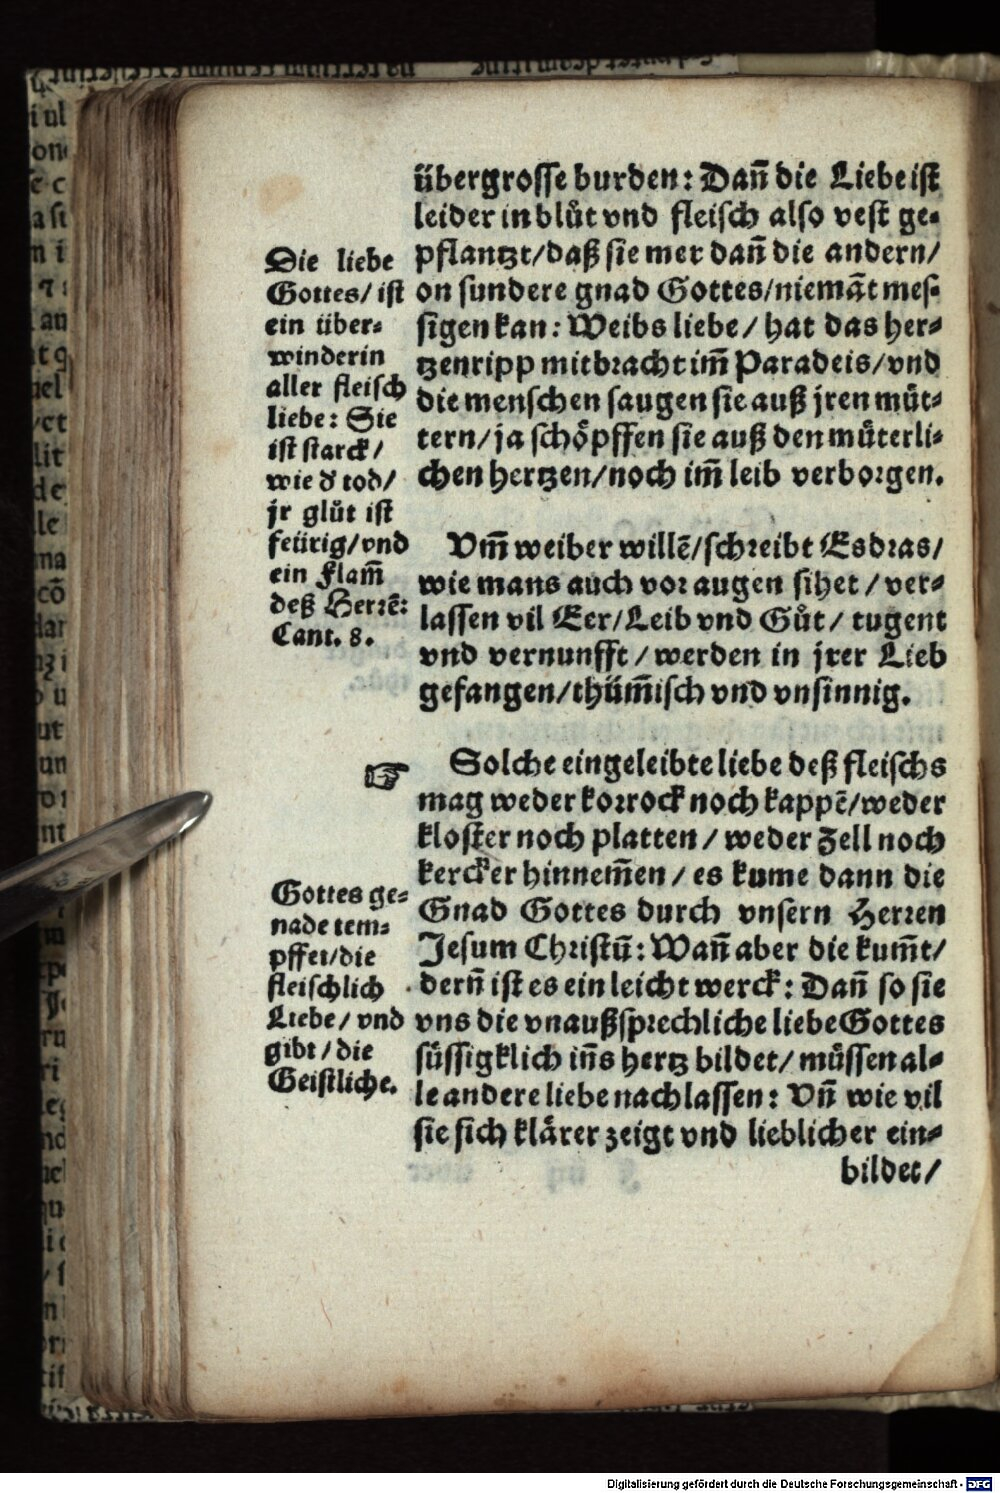 übergrosse burden: Dañ die Liebe ist
leider in blůt vnd fleisch also vest ge-
pflantzt/daß sie mer dañ die andern/
on sundere gnad Gottes/niemãt mes-
sigen kan: Weibs liebe/ hat das her-
tzenripp mitbracht im̃ Paradeis/vnd
die menschen saugen sie auß jren můt-
tern/ja schöpffen sie auß den můterli-
chen hertzen/noch im̃ leib verborgen.
Vm̃ weiber willẽ/schreibt Esdras/
wie mans auch vor augen sihet/ver-
lassen vil Eer/Leib vnd Gůt/ tugent
vnd vernunfft/werden in jrer Lieb
gefangen/thüm̃isch vnd vnsinnig.
Solche eingeleibte liebe deß fleischs
mag weder korrock noch kappẽ/weder
kloster noch platten/ weder Zell noch
kercker hinnem̃en/es kume dann die
Gnad Gottes durch vnsern Herren
Jesum Christũ: Wañ aber die kum̃t/
derñ ist es ein leicht werck: Dañ so sie
vns die vnaußsprechliche liebe Gottes
süssigklich iñs hertz bildet/ müssen al-
le andere liebe nachlassen: Vñ wie vil
sie sich klärer zeigt vnd lieblicher ein-
bildet/
Die liebe
Gottes/ist
ein über-
winderin
aller fleisch
liebe: Sie
ist starck/
wie d' tod/
jr glůt ist
feürig/vnd
ein Flam̃
deß Herrẽ:
Cant. 8.
☞
Gottes ge-
nade tem-
pffet/die
fleischlich
Liebe/vnd
gibt/die
Geistliche.
Digitalisierung gefördert durch die Deutsche Forschungsgemeinschaft - DFG